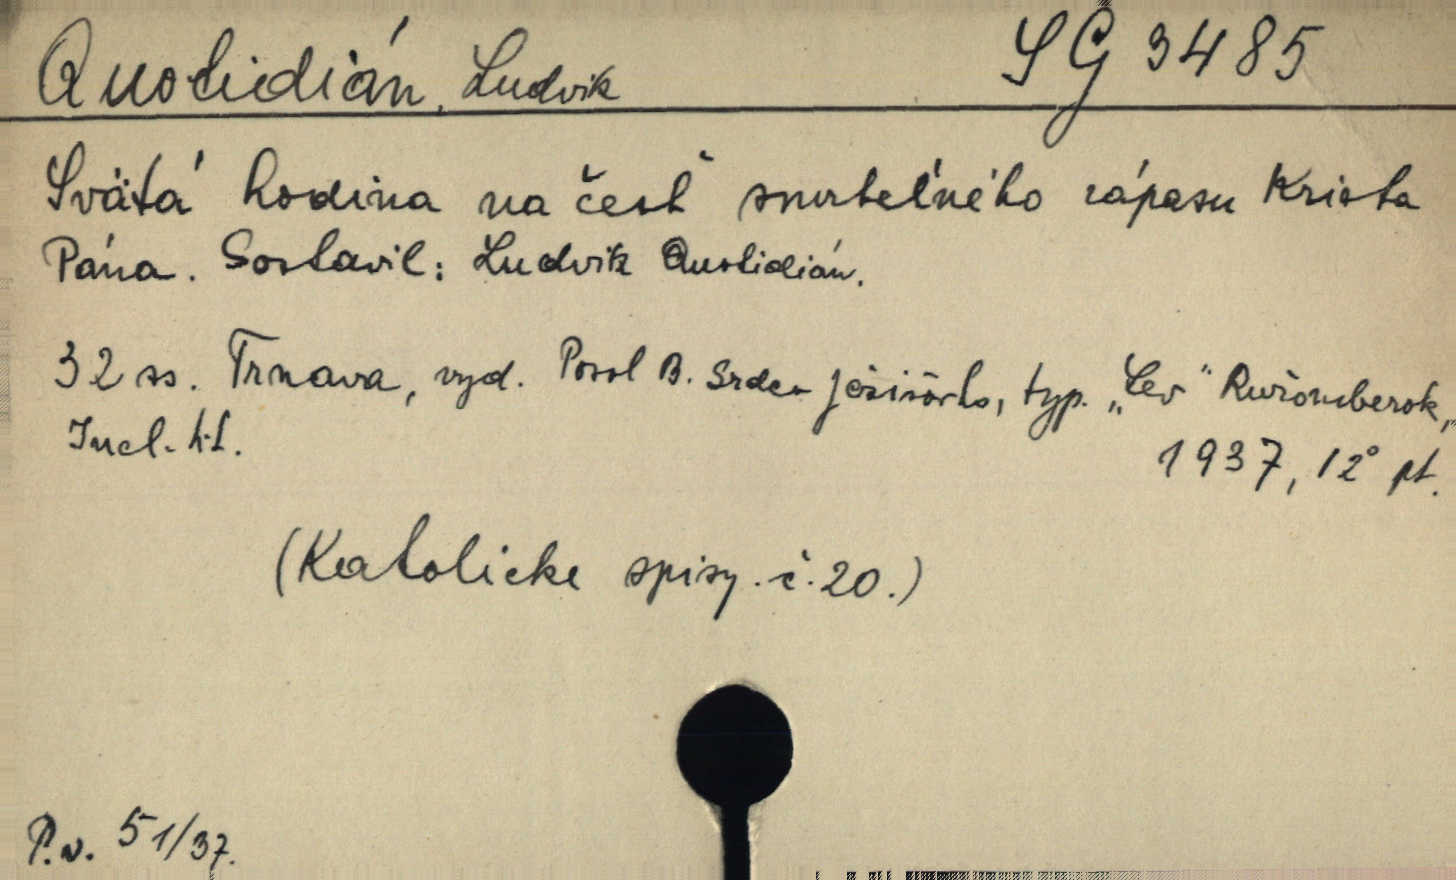 Quotidián, Ludvik SG 3485
Svätá hodina na česť smrteľného zápasu Krista
Pána. Sostavil: Ludvik Quotidián.
32 ss. Trnava, vyd. Posol B. Srdca Ježišovho, typ. „Lev" Ružomberok,
Incl. h.t. 1937, 12° pt.
(Katolicke spisy. č. 20.)
P.v. 51/37.